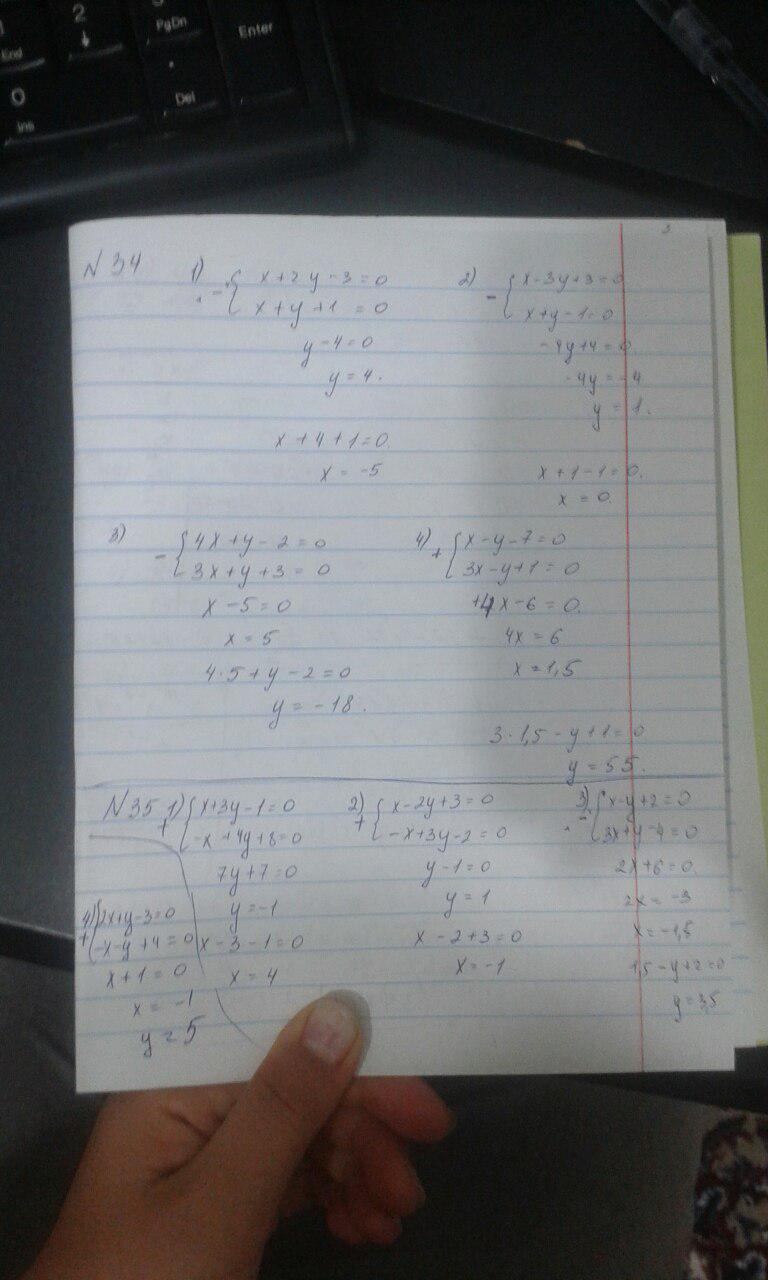 2
PgDn
Enter
End
↓
.
0
Ins
Del
N 34
1) - { x+2y-3=0
x+y+1=0
y-4=0
y=4.
x+4+1=0.
x=-5
2) - { x-3y+3=0
x+y-1=0
-4y+4=0.
-4y=-4
y=1.
x+1-1=0.
x=0.
3) - { 4x+y-2=0
3x+y+3=0
x-5=0
x=5
4·5+y-2=0
y=-18.
4) + { x-y-7=0
3x-y+1=0
+4x-6=0.
4x=6
x=1,5
3·1,5-y+1=0
y=5,5.
N35 1) + { x+3y-1=0
-x+4y+8=0
7y+7=0
y=-1
x-3-1=0
x=4
2) + { x-2y+3=0
-x+3y-2=0
y-1=0
y=1
x-2+3=0
x=-1
3) - { x-y+2=0
3x+y-4=0
2x+6=0.
2x=-3
x=-1,5
1,5-y+2=0
y=3,5
4) + { 2x+y-3=0
-x-y+4=0
x+1=0
x=-1
y=5